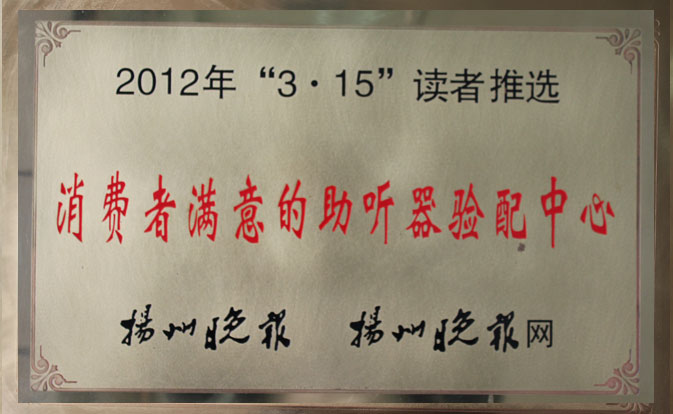 2012年“3·15”读者推选
消费者满意的助听器验配中心
揚州晚报 揚州晚报网